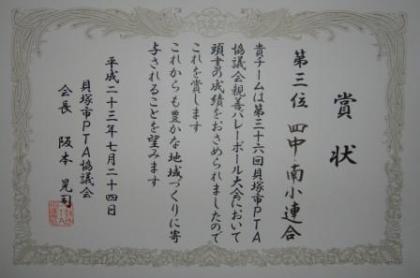 賞状
第三位 四中・南小連合
貴チームは第三十六回貝塚市PTA
協議会親善バレーボール大会において
頭書の成績をおさめられましたので
これを賞します
これからも豊かな地域づくりに寄
与されることを望みます
平成二十三年七月二十四日
貝塚市PTA協議会
会長 阪本 晃司